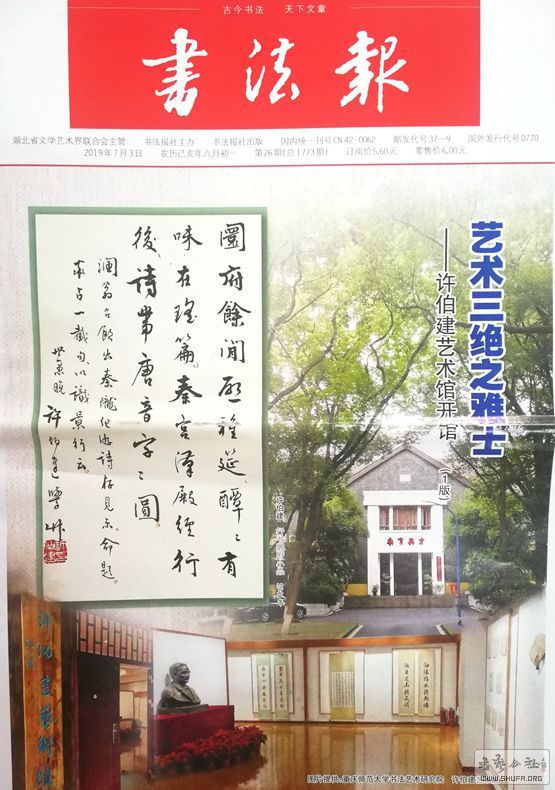 古今书法 天下文章
书法報
湖北省文学艺术界联合会主管 书法报社主办 书法报社出版 国内统一刊号CN 42-0062 邮发代号37—9 国外发行代号D770
2019年7月3日 农历己亥年六月初一 第26期(总1773期) 订阅价5.60元 零售价6.00元
艺术三绝之雅士
——许伯建艺术馆开馆
(1版)
府餘閒 醰〻有
味在瑤篇。秦宫漢殿經行
後詩帶唐音字〻圓。
出秦隴纪游诗 見示命題。
求占一截句以識景行云
许伯建
许伯建艺術馆
图片提供:重庆师范大学书法艺术研究院 许伯建
WWW.SHUFA.ORG